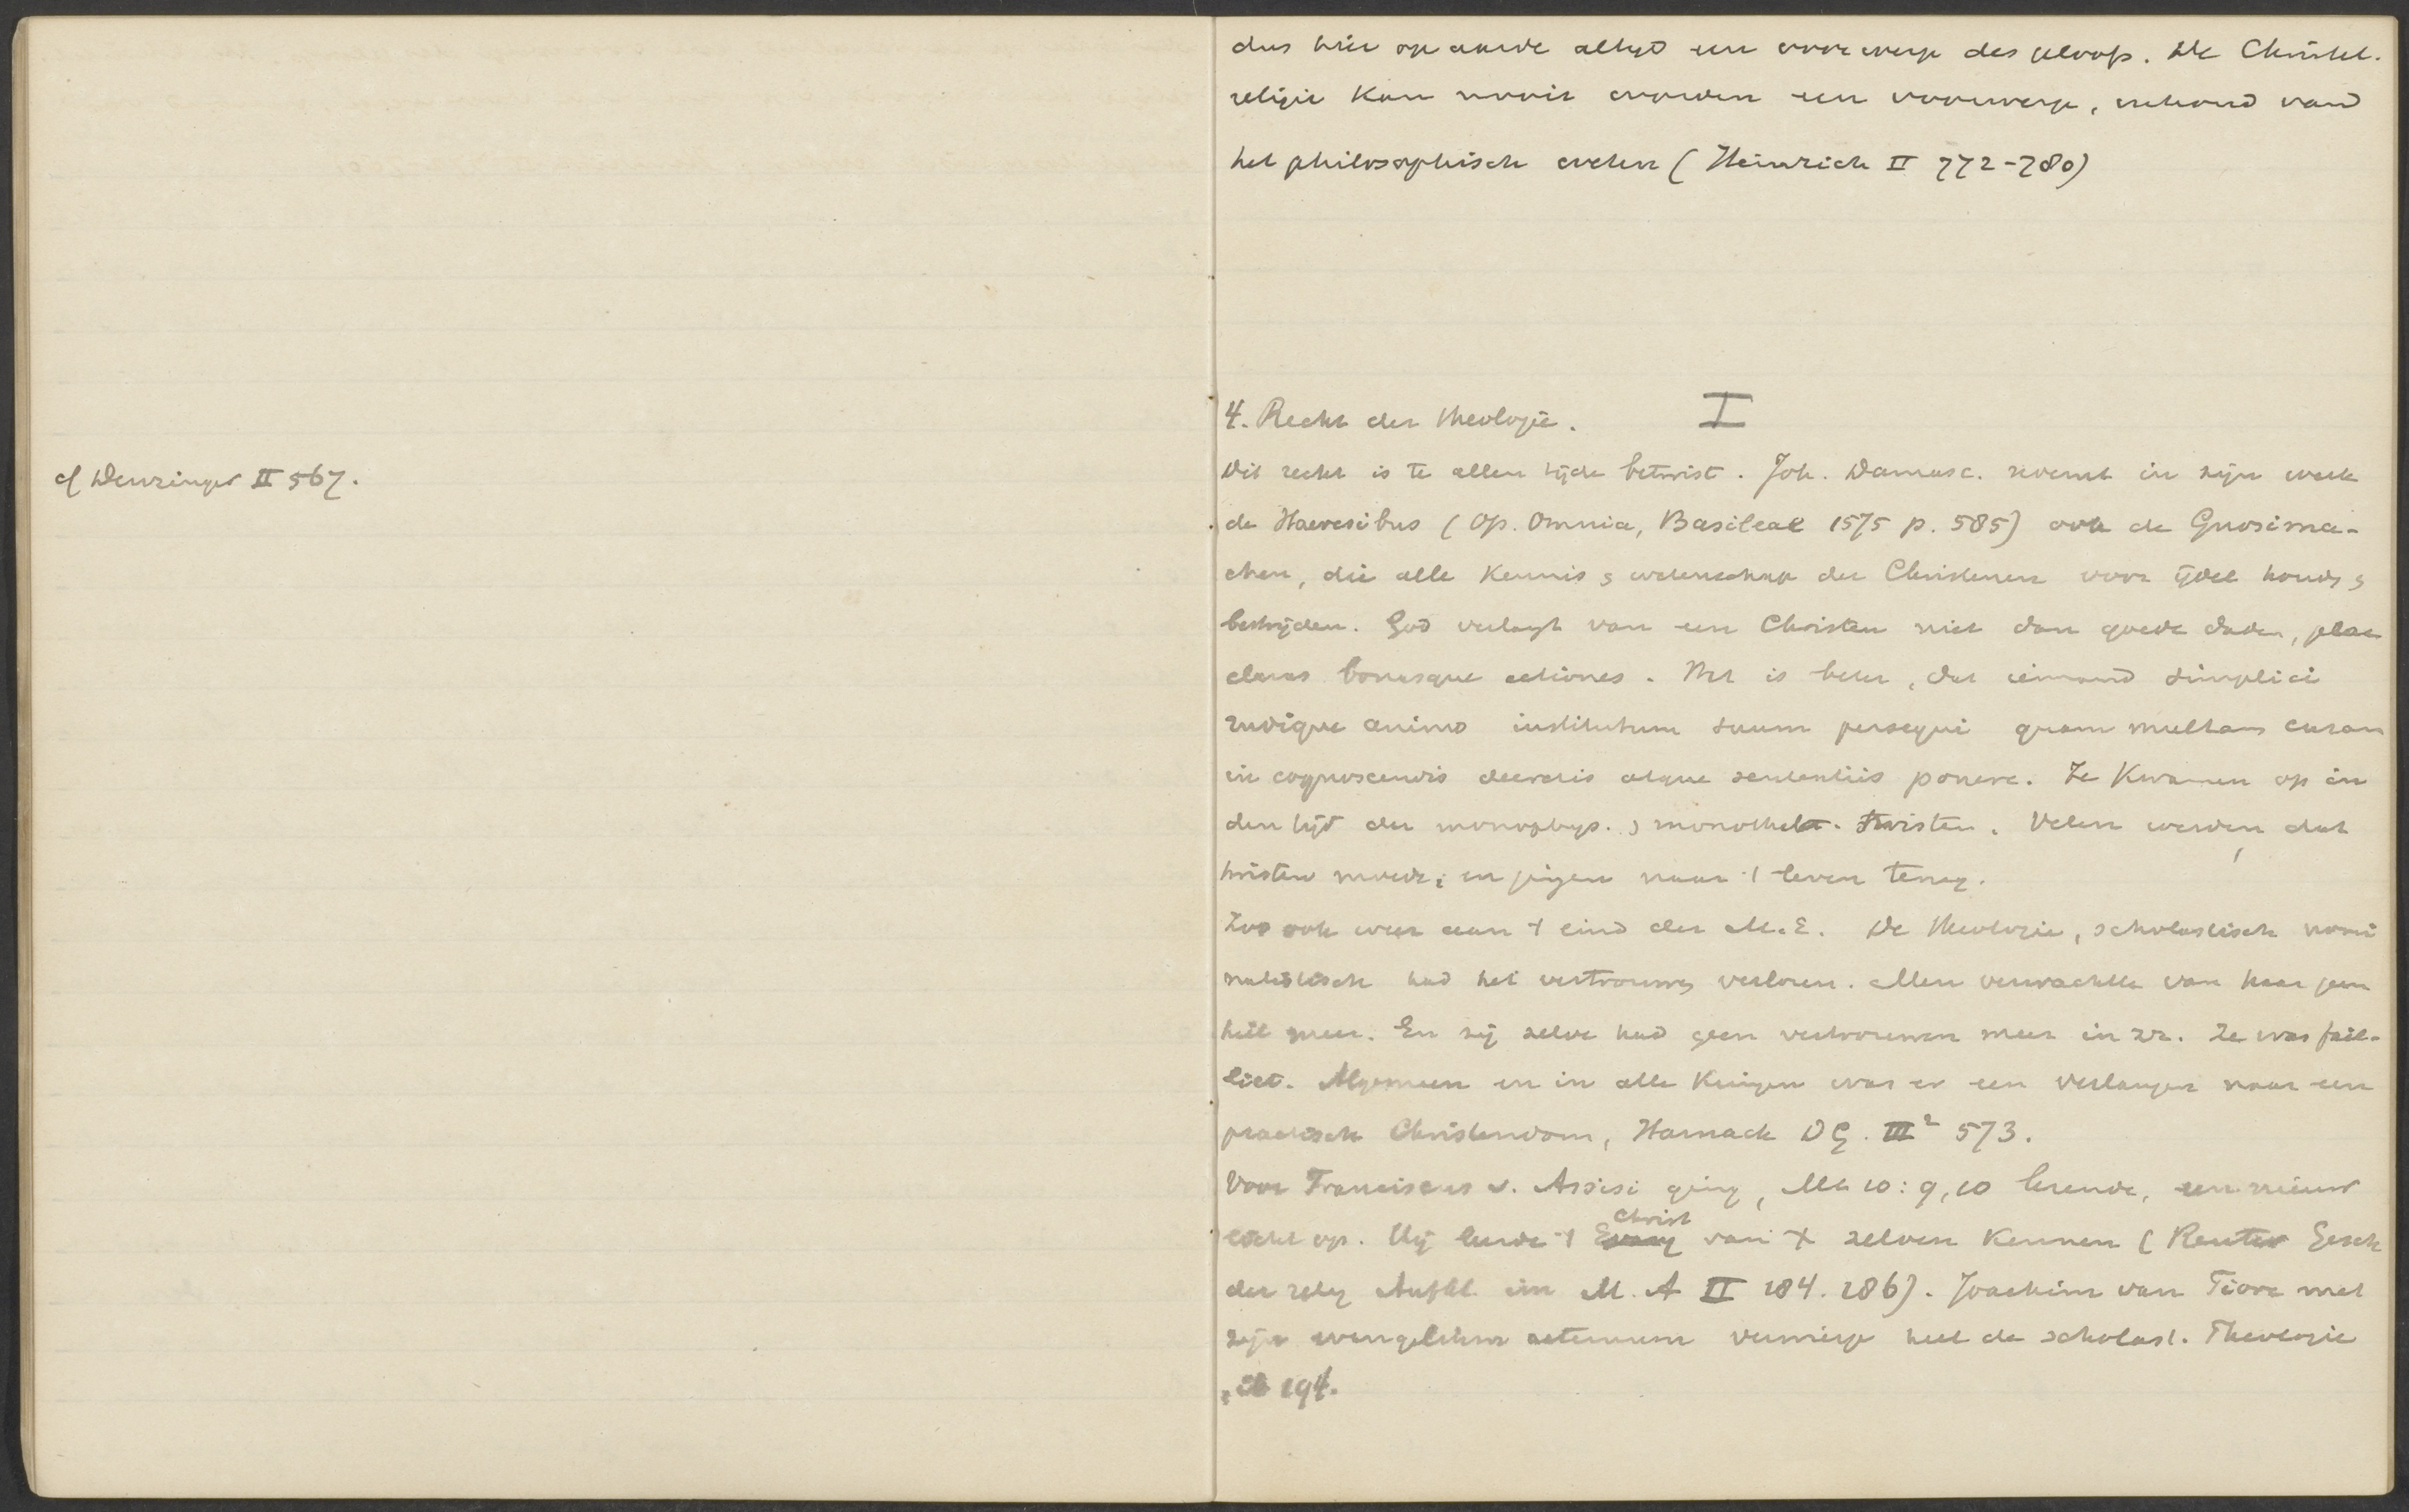 cf Denzinger II 567.
dus hier op aarde altijd een voorwerp des geloofs. De Christel.
religie kan nooit worden een voorwerp, inhoud van
het philosophisch weten (Heinrich II 772-780)
4. Recht der theologie. I
Dit recht is te allen tijde betwist. Joh. Damasc. noemt in zijn werk
de Haeresibus (Op. Omnia, Basileae 1575 p. 585) ook de Gnosima-
chen, die alle kennis & wetenschap der Christenen voor ijdel houdn &
bestrijden. God verlangt van een Christen niet dan goede daden, prae
claras bonasque actiones. Het is beter, dat iemand simplici
rudique animo institutum suum persequi quam multam curam
in cognoscendis decretis atque sententiis ponere. Ze kwamen op in
den tijd der monophys. & monothelet. twisten. Velen werden dat
twisten moede; en gingen naar 't leven terug.
Zoo ook weer aan 't eind der M.E. De theologie, scholastisch nomi
nalistisch had het vertrouwen verloren. Men verwachtte van haar geen
heil meer. En zij zelve had geen vertrouwen meer in zr. Ze was fail-
liet. Algemeen en in alle kringen was er een verlangen naar een
practisch Christendom, Harnack DG. III² 573.
Voor Franciscus v. Assisi ging, Mt 10:9,10 lezende, een nieuw
licht op. Hij leerde 't Evang Christ van X zelven kennen (Reuter Gesch
der relig Aufkl. im M.A II 184. 186). Joachim van Fiore met
zijn evangelium aeternum verwierp heel de scholast. Theologie
, ib 194.